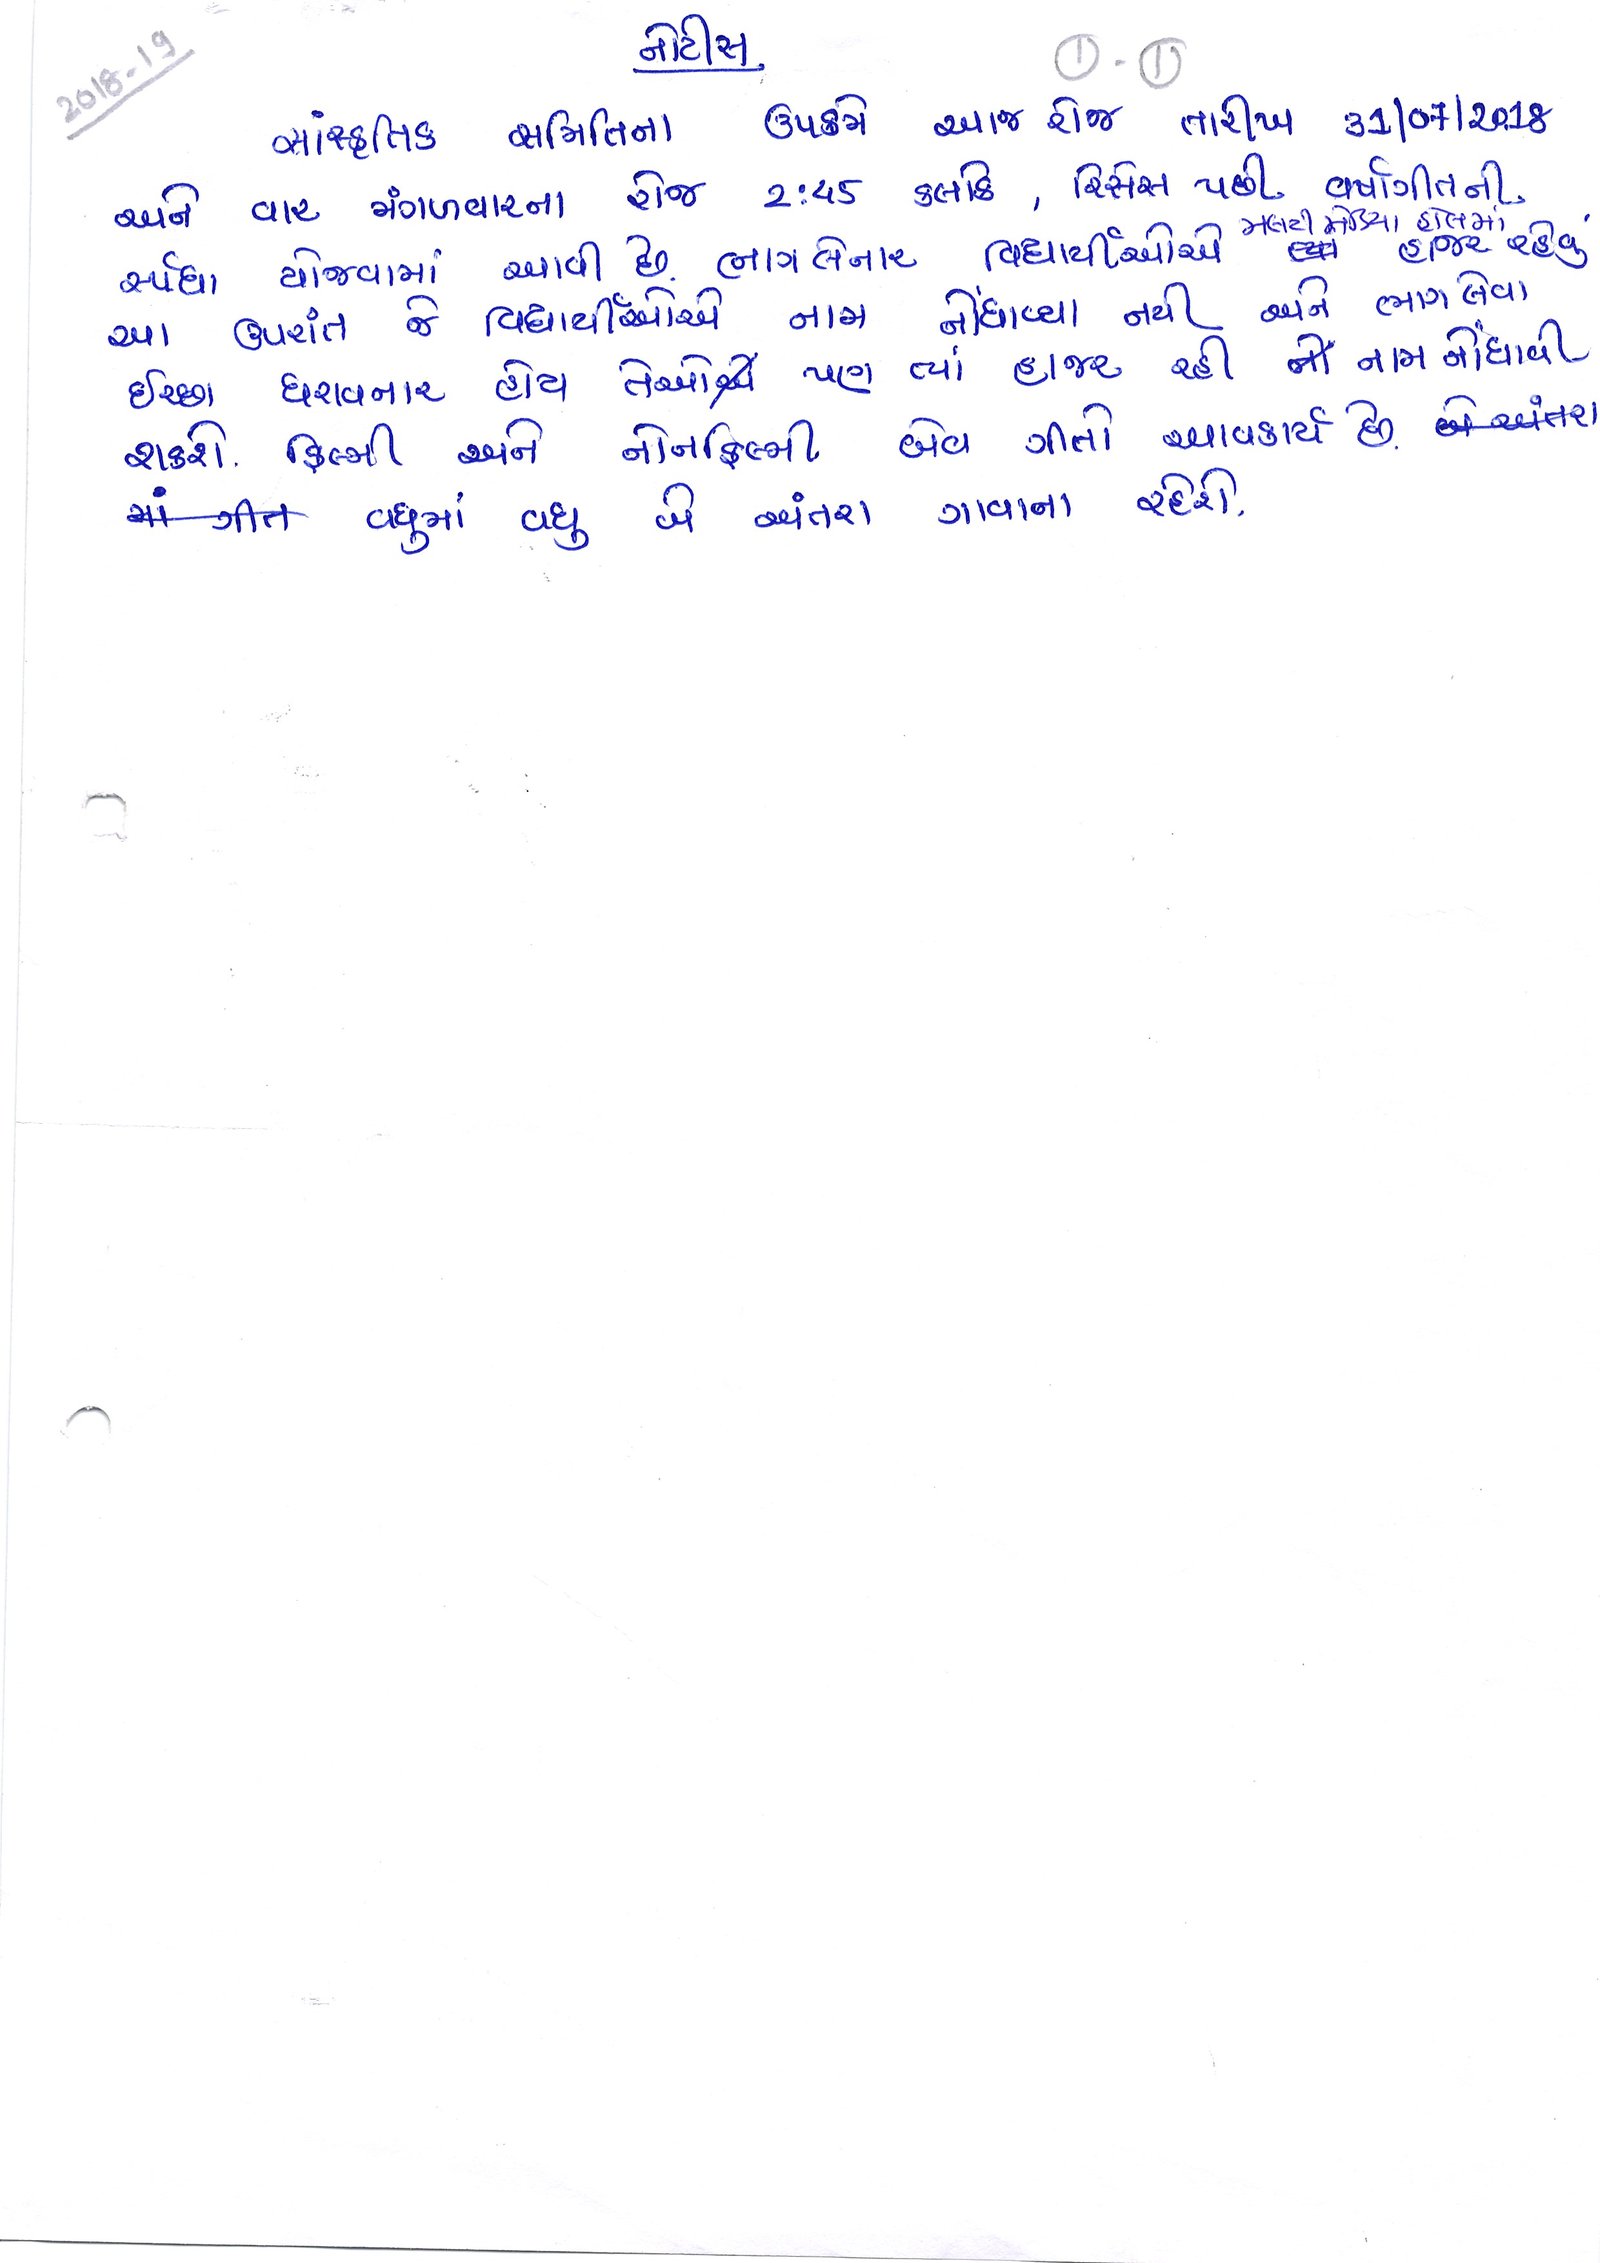 2018-19
નોટીસ
① - ①
સાંસ્કૃતિક સમિતિના ઉપક્રમે આજ રોજ તારીખ 31/07/2018
અને વાર મંગળવારના રોજ 2:45 કલાકે , રિસેસ પછી વર્ષાગીતની
મલટી મેડિયા હોલમાં
સ્પર્ધા યોજવામાં આવી છે. ભાગ લેનાર વિદ્યાર્થીઓએ હાજર રહેવું
આ ઉપરાંત જે વિદ્યાર્થીઓએ નામ નોંધાવ્યા નથી અને ભાગ લેવા
ઈચ્છા ધરાવનાર હોય તેઓ પણ ત્યાં હાજર રહી નામ નોંધાવી
શકશે. ફિલ્મી અને નોનફિલ્મી બેવ ગીતો આવકાર્ય છે. બે અંતરા
માં ગીત વધુમાં વધુ બે અંતરા ગાવાના રહેશે.